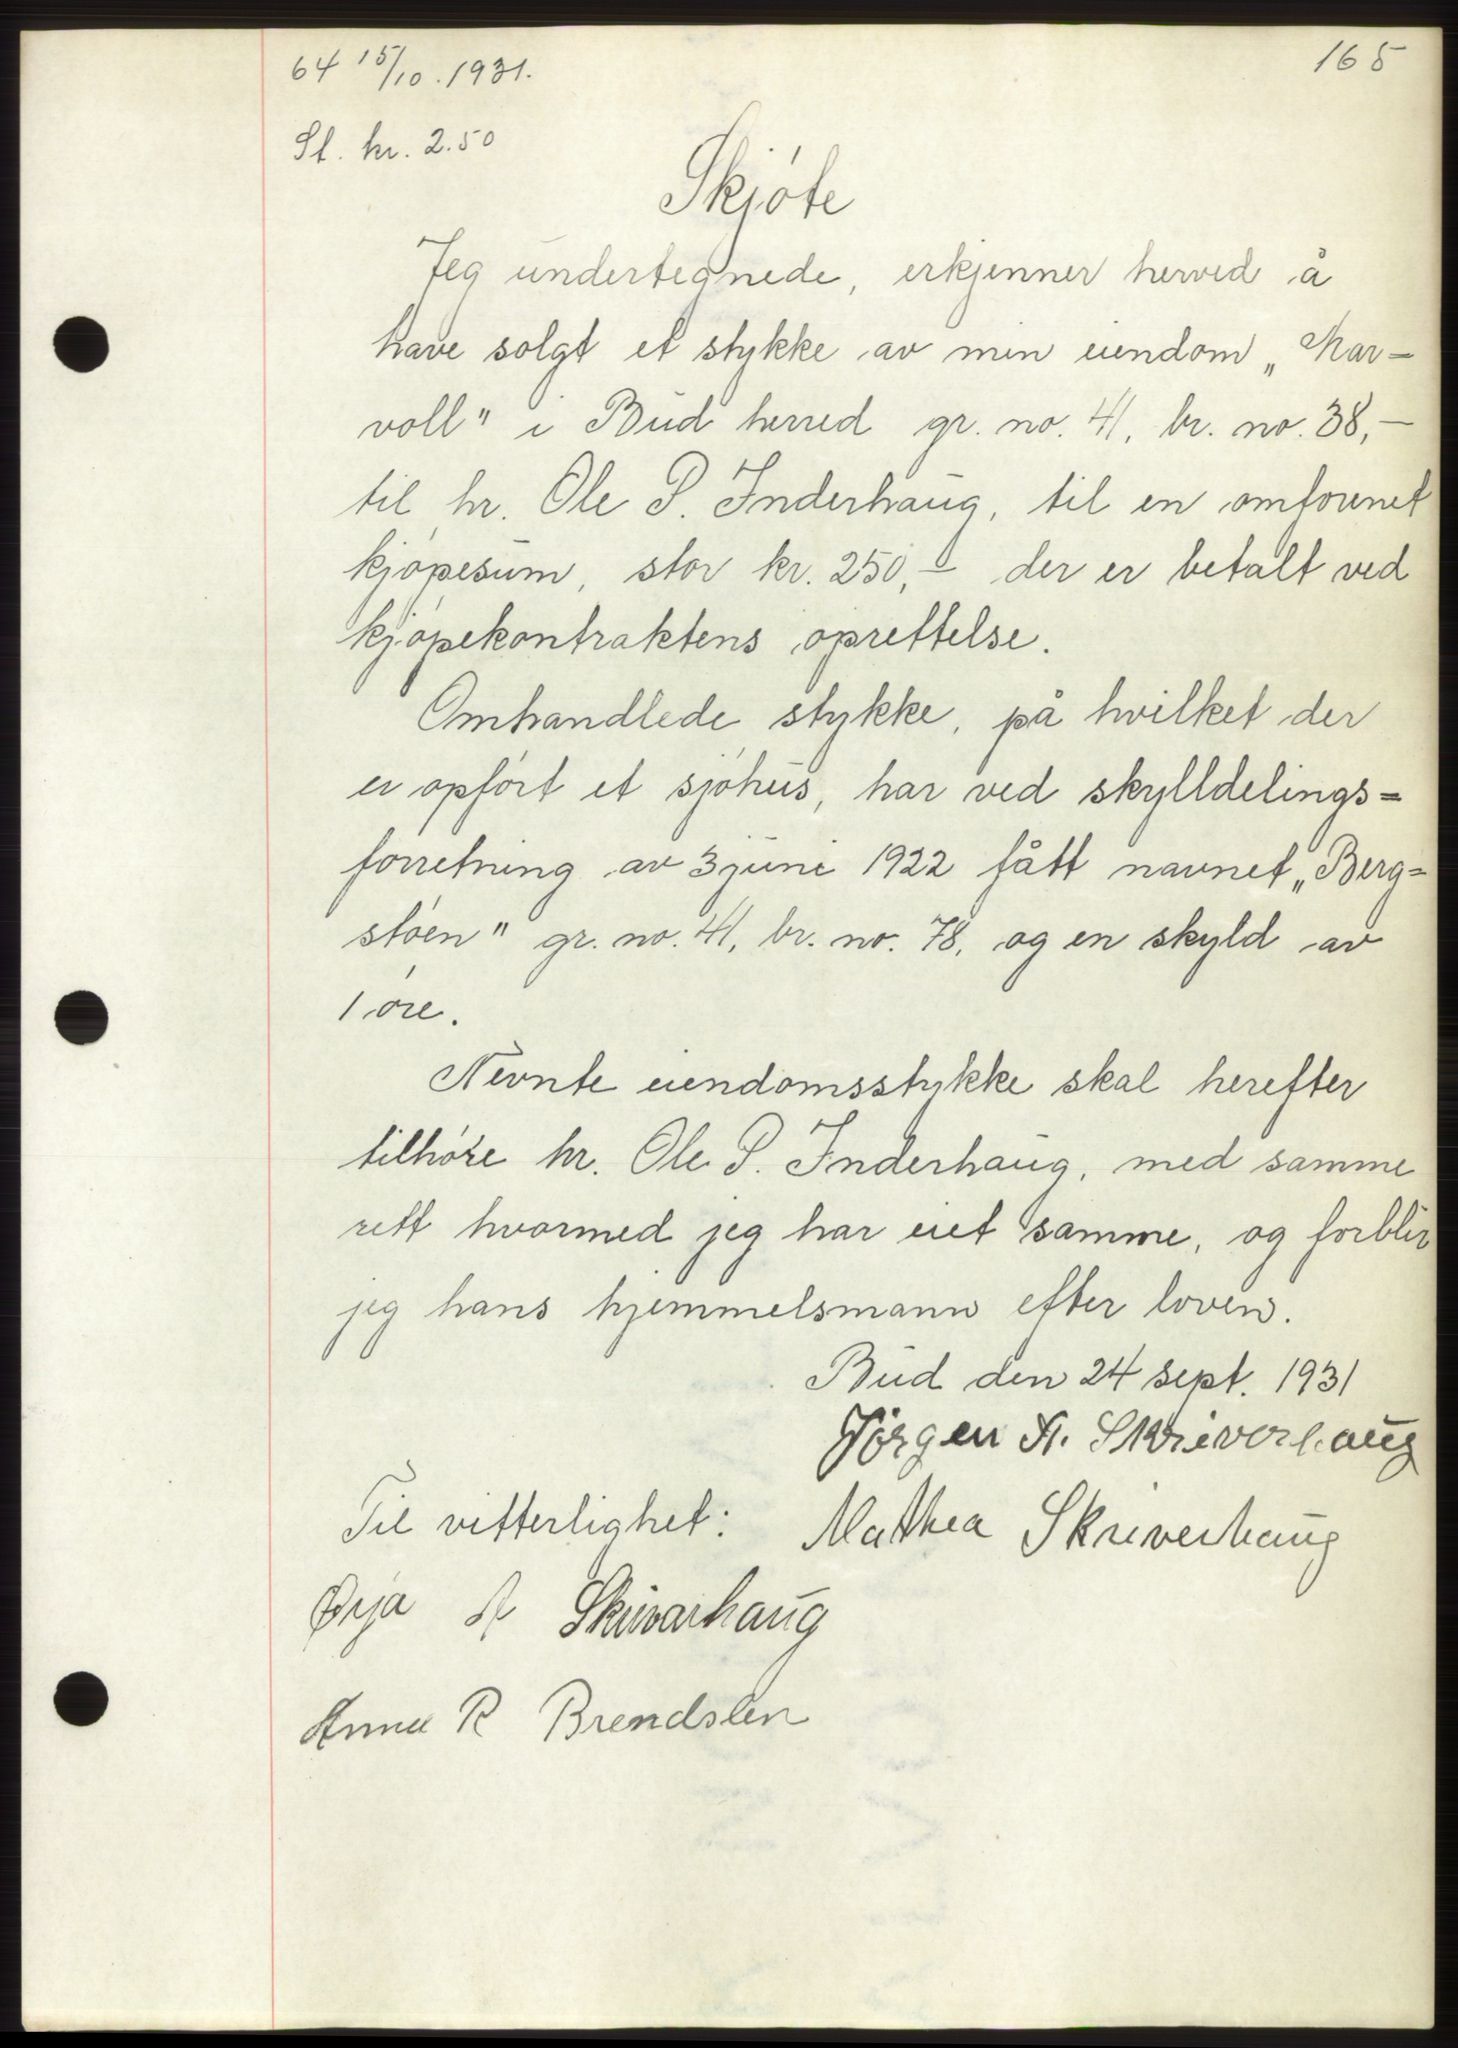 64 15/10. 1931.
165
St. kr. 2.50
Skjöte
Jeg undertegnede, erkjenner herved å
have solgt et stykke av min eiendom „Mar-
voll" i Bud herred gr. no. 41, br. no. 38,-
til hr. Ole P. Inderhaug, til en omforenet
kjöpesum, stor kr. 250,- der er betalt ved
kjöpekontraktens oprettelse.
Omhandlede stykke, på hvilket der
er opfört et sjöhus, har ved skylldelings=
forretning av 3 juni 1922 fått navnet „Berg=
stöen" gr. no. 41, br. no. 78, og en skyld av
1 öre.
Nevnte eiendomsstykke skal herefter
tilhöre hr. Ole P. Inderhaug, med samme
rett hvormed jeg har eiet samme, og forblir
jeg hans hjemmelsmann efter loven.
Bud den 24 sept. 1931
Jörgen A. Skriverhaug
Til vitterlighet:
Mathea Skriverhaug
A Skrivarhaug
Anna R Brendslen